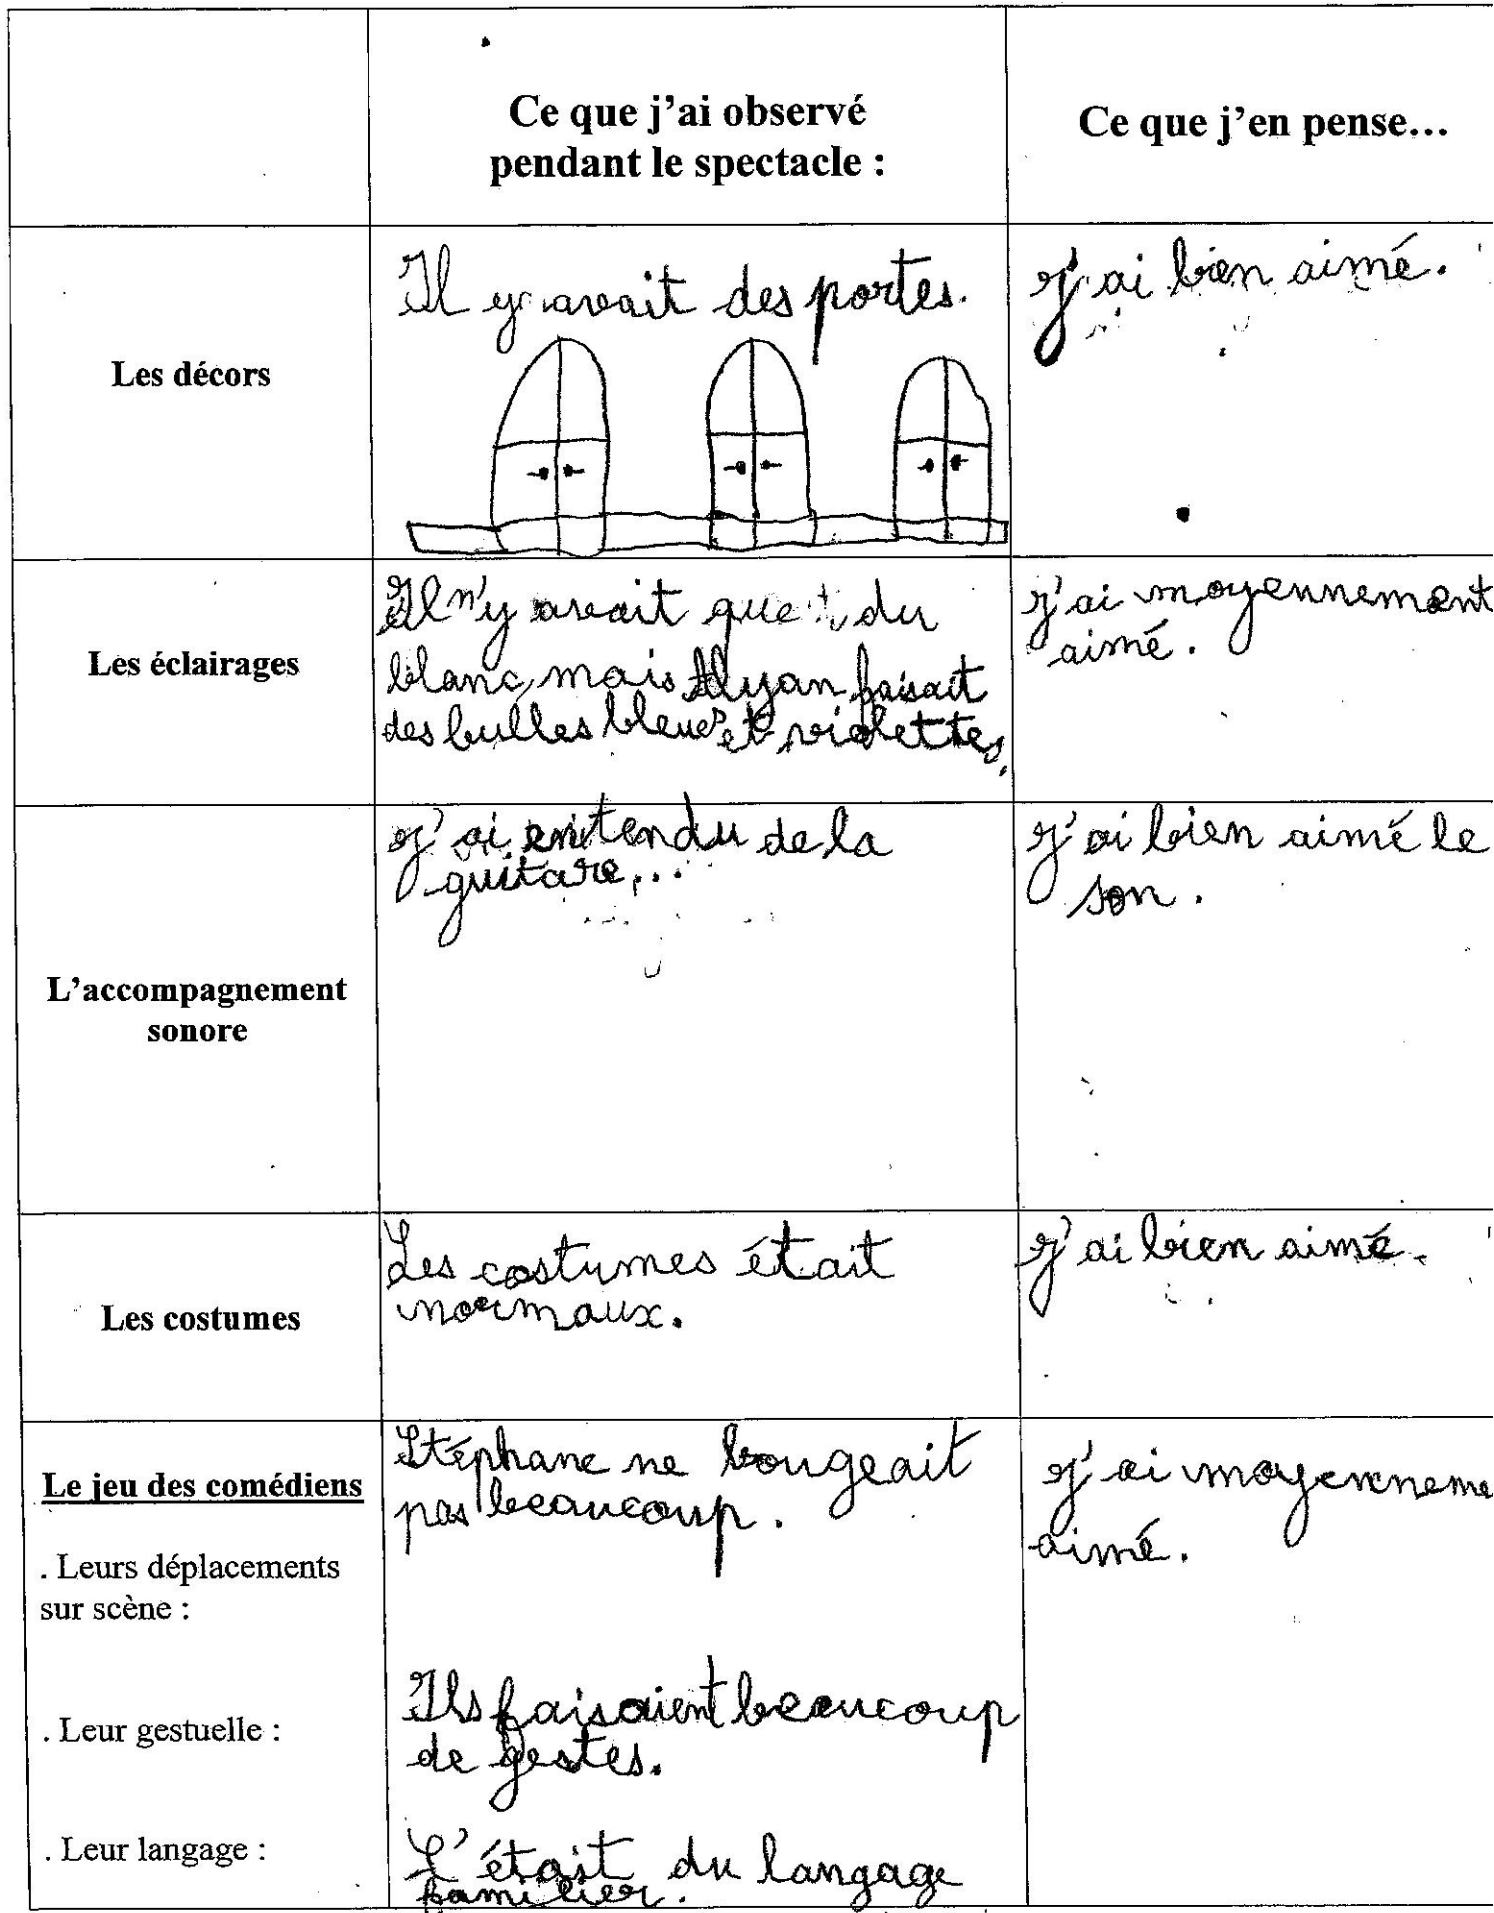 Ce que j'ai observé
pendant le spectacle :
Ce que j'en pense...
Les décors
Il y avait des portes.
j'ai bien aimé.
Les éclairages
Il n'y avait que du
blanc, mais Ilyan faisait
des bulles bleues et violettes.
j'ai moyennement
aimé.
L'accompagnement
sonore
j'ai entendu de la
guitare...
j'ai bien aimé le
son.
Les costumes
Les costumes était
normaux.
j'ai bien aimé.
Le jeu des comédiens
. Leurs déplacements
sur scène :
Stéphane ne bougeait
pas beaucoup.
j'ai moyenneme
aimé.
. Leur gestuelle :
Ils faisaient beaucoup
de gestes.
. Leur langage :
C'était du langage
familier.